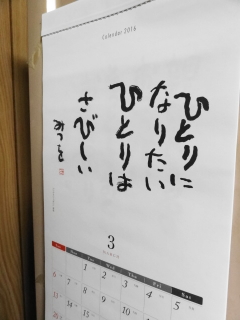 Calendar 2016
ひとりに
なりたい
ひとりは
さびしい
みつを
3
MARCH
Sun Mon Tue Wed Thu Fri Sat
1 2 3 4 5
6 7 8 9 10 11 12